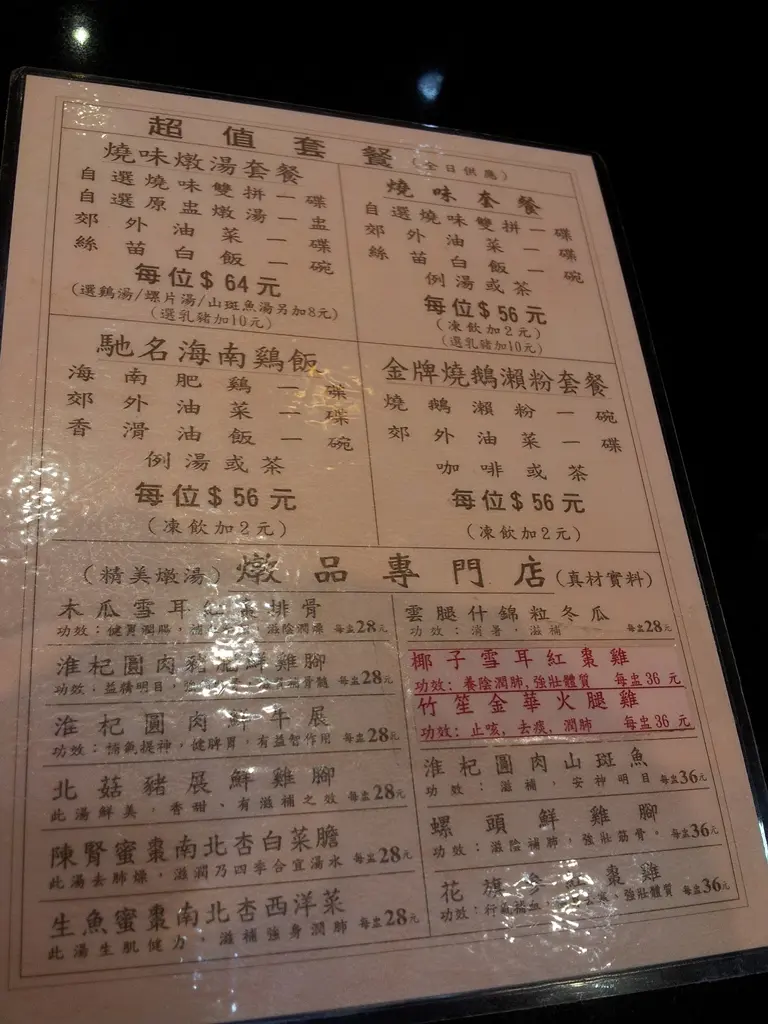 超值套餐(全日供應)
燒味燉湯套餐
自選燒味雙拼一碟
自選原盅燉湯一盅
郊外油菜一碟
絲苗白飯一碗
每位$64元
(選鷄湯/螺片湯/山斑魚湯另加8元)
(選乳豬加10元)
燒味套餐
自選燒味雙拼一碟
郊外油菜一碟
絲苗白飯一碗
例湯或茶
每位$56元
(凍飲加2元)
(選乳豬加10元)
馳名海南鷄飯
海南肥鷄一碟
郊外油菜一碟
香滑油飯一碗
例湯或茶
每位$56元
(凍飲加2元)
金牌燒鵝瀨粉套餐
燒鵝瀨粉一碗
郊外油菜一碟
咖啡或茶
每位$56元
(凍飲加2元)
(精美燉湯)燉品專門店(真材實料)
木瓜雪耳紅棗排骨
功效:健胃潤腸,滋陰潤燥 每盅28元
淮杞圓肉豬尾鮮雞腳
功效:益精明目, 每盅28元
淮杞圓肉鮮牛展
功效:補氣提神,健脾胃,有益智作用 每盅28元
北菇豬展鮮雞腳
此湯鮮美,香甜、有滋補之效 每盅28元
陳腎蜜棗南北杏白菜膽
此湯去肺燥,滋潤乃四季合宜湯水 每盅28元
生魚蜜棗南北杏西洋菜
此湯生肌健力,滋補強身潤肺 每盅28元
雲腿什錦粒冬瓜
功效:消暑,滋補 每盅28元
椰子雪耳紅棗雞
功效:養陰潤肺,強壯體質 每盅36元
竹笙金華火腿雞
功效:止咳,去痰,潤肺 每盅36元
淮杞圓肉山斑魚
功效:滋補,安神明目 每盅36元
螺頭鮮雞腳
功效:滋陰補肺,強壯筋骨。每盅36元
花旗參紅棗雞
功效:行氣補血,強壯體質 每盅36元